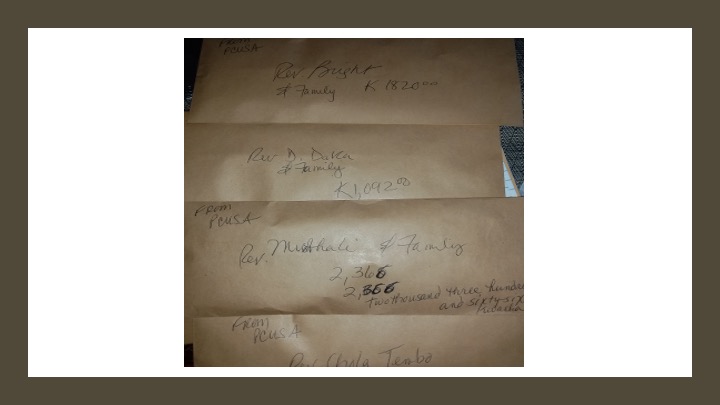 From
PCUSA
Rev Bright
& Family K 1820.00
Rev D.
& Family
K1,092.00
From
PCUSA
Rev. & Family
2,366
2,366
two thousand three, hundre
and sixty-six
Kwacha
From
PCUSA
Rev Chola Tembo